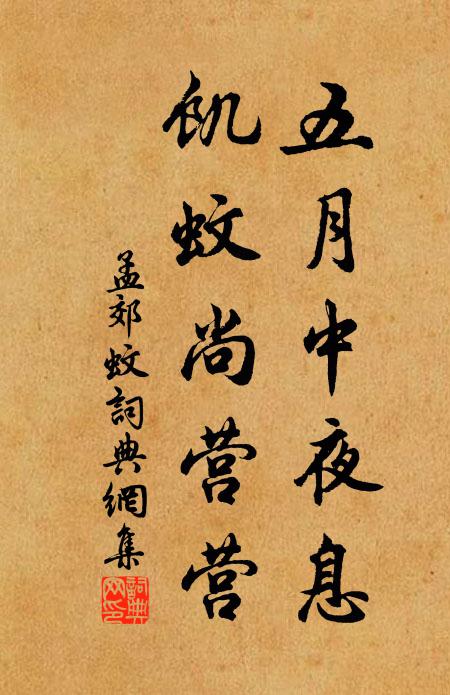 五月中夜息
飢蚊尚营营
孟郊蚊詞典網集
詞典
网印